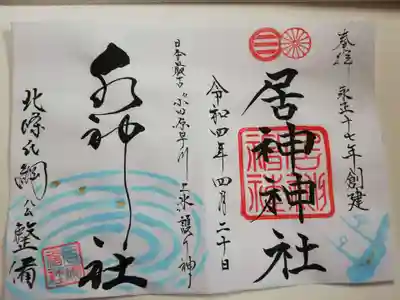 奉拝 永正十七年創建
居神神社
令和四年四月二十日
日本最古"小田原早川上水護り神
水神社
北條氏綱公整備